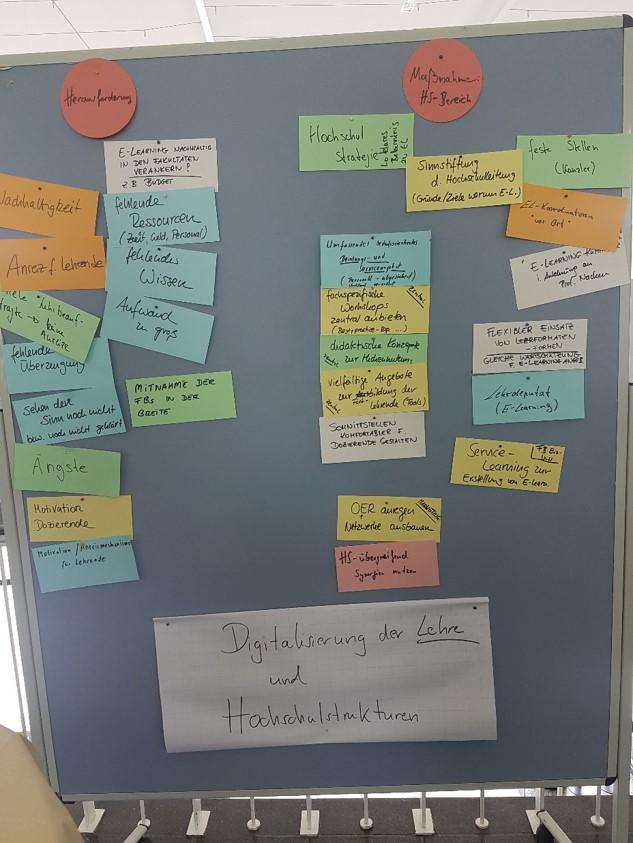 Herausforderung
Maßnahme:
HS-Bereich
E-LEARNING NACHHALTIG
IN DEN FAKULTÄTEN
VERANKERN?
Z.B BUDGET
Nachhaltigkeit
fehlende
Ressourcen
(Zeit, Geld, Personal)
Anreiz f. Lehrende
fehlendes
Wissen
viele Lehrbeauf-
tragte → keine
Anreize
Aufwand
zu groß
fehlende
Überzeugung
sehen den
Sinn noch nicht
bzw. noch nicht geklärt
MITNAHME DER
FBs IN DER
BREITE
Ängste
Motivation
Dozierende
Motivation /
für Lehrende
Hochschul
Strategie
Sinnstiftung
d. Hochschulleitung
(Gründe/Ziele warum E-L.)
feste Stellen
(Kanzler)
EL-Koordinatoren
"vor Ort"
E-LEARNING
i. Anlehnung an
Prof.
Umfassendes
Beratungs- und
Serviceangebot
fachspezifische
Workshops
zentral anbieten
(Best-practice-Bsp. ...)
didaktische Konzepte
zur Mediennutzung
vielfältige Angebote
zur Fortbildung der
Lehrende (Tools)
SCHNITTSTELLEN
KOMFORTABLER F.
DOZIERENDE GESTALTEN
FLEXIBLER EINSATZ
VON LEHRFORMATEN
-FORMEN
GLEICHE WERTSCHÄTZUNG
Lehrdeputat
(E-Learning)
Service-
Learning zur
Erstellung von E-Learn.
OER anregen
Netzwerke ausbauen
HS-übergreifend
Synergien nutzen
Digitalisierung der Lehre
und
Hochschulstrukturen